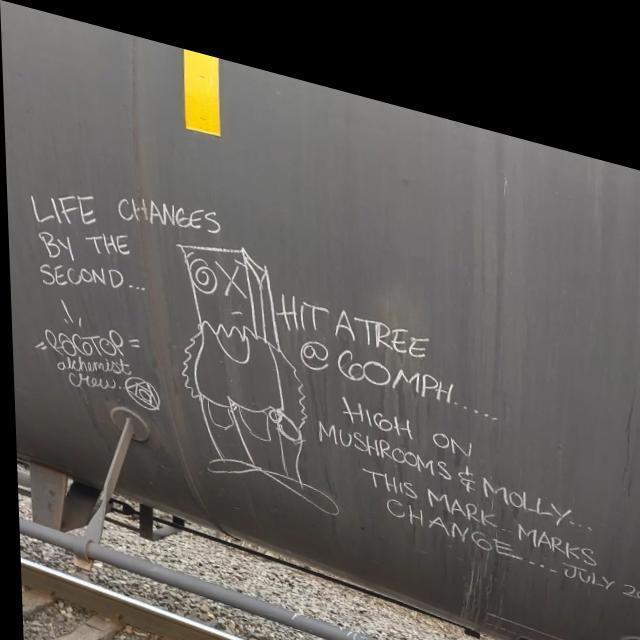 LIFE CHANGES
BY THE
SECOND...
alchemist
crew.
HIT A TREE
@ 60OMPH.....
HIGH ON
MUSHROOMS & MOLLY...
THIS MARK MARKS
CHANGE..... JULY